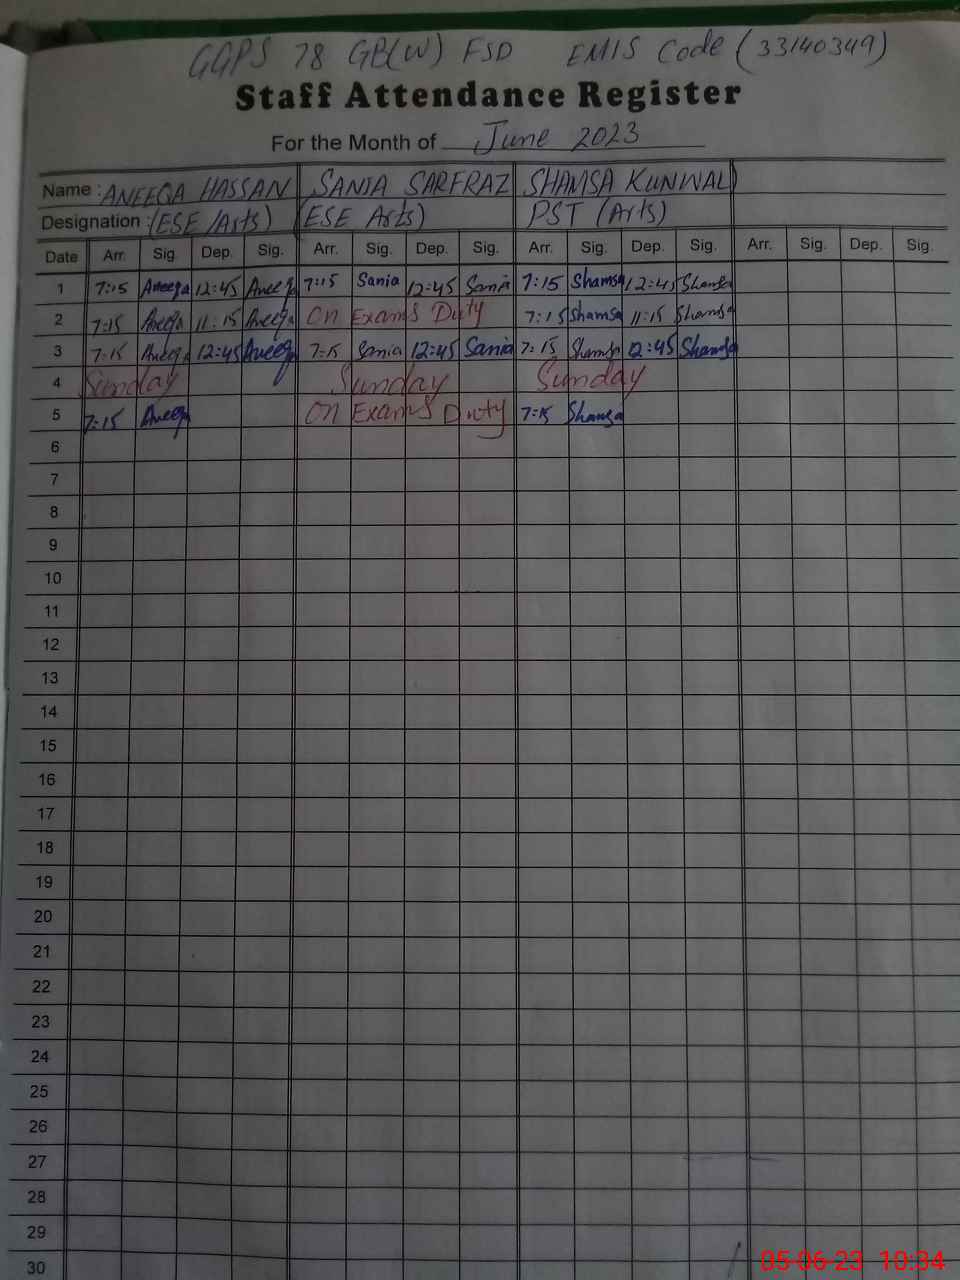 GGPS 78 GB(W) FSD EMIS Code (33140349)
Staff Attendance Register
For the Month of June 2023
Name : ANEEQA HASSAN SANIA SARFRAZ SHAMSA KUNWAL
Designation : (ESE /Arts) (ESE Arts) PST (Arts)
Date Arr. Sig. Dep. Sig. Arr. Sig. Dep. Sig. Arr. Sig. Dep. Sig. Arr. Sig. Dep. Sig.
1 7:15 Aneeqa 12:45 Aneeqa 7:15 Sania 12:45 Sania 7:15 Shamsa 12:45 Shamsa
2 7:15 Aneeqa 11:15 Aneeqa On Exams Duty 7:15 Shamsa 11:15 Shamsa
3 7:15 Aneeqa 12:45 Aneeqa 7:15 Sania 12:45 Sania 7:15 Shamsa 12:45 Shamsa
4 Sunday Sunday Sunday
5 7:15 Aneeqa On Exams Duty 7:15 Shamsa
6
7
8
9
10
11
12
13
14
15
16
17
18
19
20
21
22
23
24
25
26
27
28
29
30
05-06-23 10:34